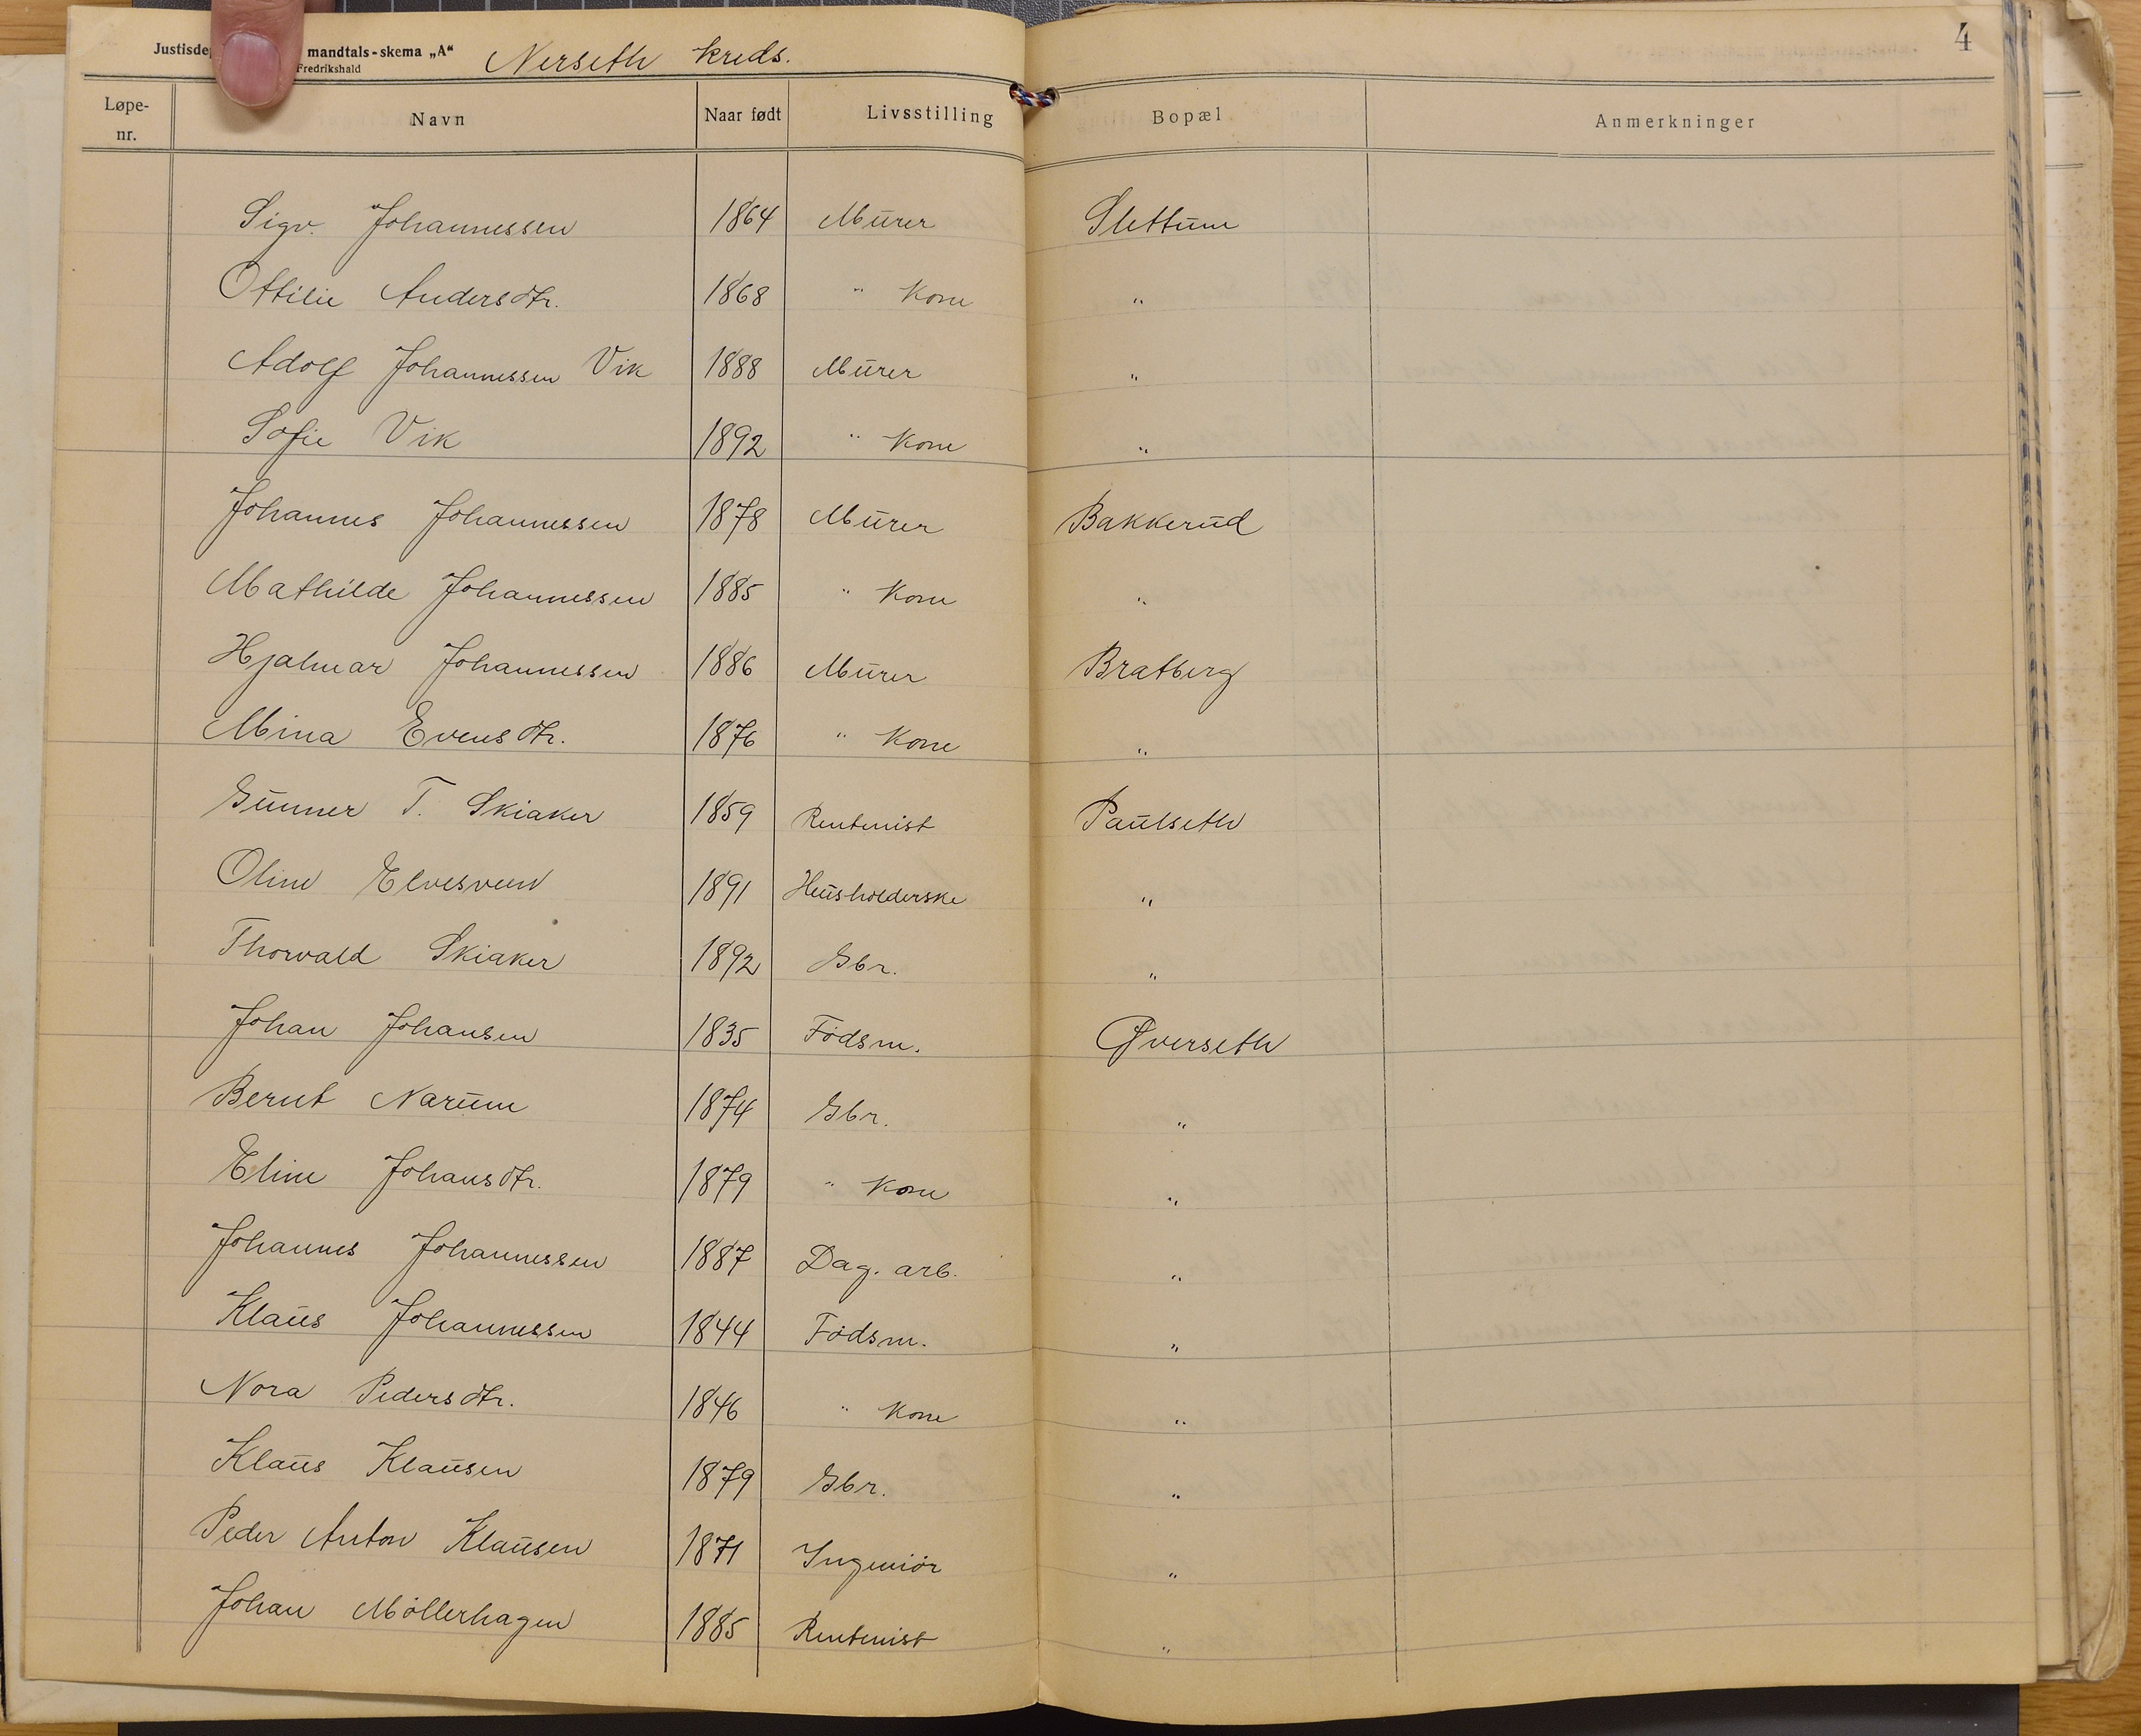 4
Justisde mandtals-skema „A“ Nerseth kreds.
Fredrikshald
Løpe-nr. Navn Naar født Livsstilling Bopæl Anmerkninger
Sigv. Johannessen 1864 Murer Slettum
Ottilie Andersdtr. 1868 " Kone "
Adolf Johannessen Vik 1888 Murer "
Sofie Vik 1892 " Kone "
Johannes Johannessen 1878 Murer Bakkerud
Mathilde Johannessen 1885 " Kone "
Hjalmar Johannessen 1886 Murer Bratberg
Mina Evensdtr. 1876 " Kone "
Gunner T. Skiaker 1859 Rentenist Paulseth
Oline Elvesveen 1891 Husholderske "
Thorvald Skiaker 1892 Gbr. "
Johan Johansen 1835 Födsm. Øverseth
Bernt Narum 1874 Gbr. "
Eline Johansdtr. 1879 " Kone "
Johannes Johannessen 1887 Dag. arb. "
Klaus Johannessen 1844 Födsm. "
Nora Pedersdtr. 1846 " Kone "
Klaus Klausen 1879 Gbr. "
Peder Anton Klausen 1871 Ingeniör "
Johan Möllerhagen 1885 Rentenist "